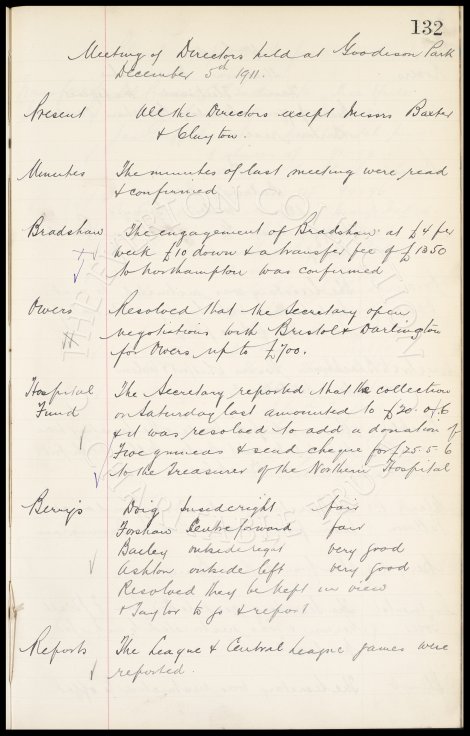 132
Meeting of Directors held at Goodison Park
December 5th 1911.
Present All the Directors except Messrs Baxter
& Clayton.
Minutes The minutes of last meeting were read
& confirmed
Bradshaw The engagement of Bradshaw at £4 per
week £10 down & a transfer fee of £1350
to Northampton was confirmed
Owers Resolved that the Secretary open
negotiations with Bristol & Darlington
for Owers up to £700.
Hospital The Secretary reported that the collection
Fund on Saturday last amounted to £20.0.6
& it was resolved to add a donation of
Five guineas & send cheque for £25-5-6
to the Treasurer of the Northern Hospital
Doig Inside right fair
Forshaw Centre forward fair
Bailey outside right very good
Ashton outside left very good
Resolved they be kept in view
& Taylor to go & report
Reports The League & Central League games were
reported.